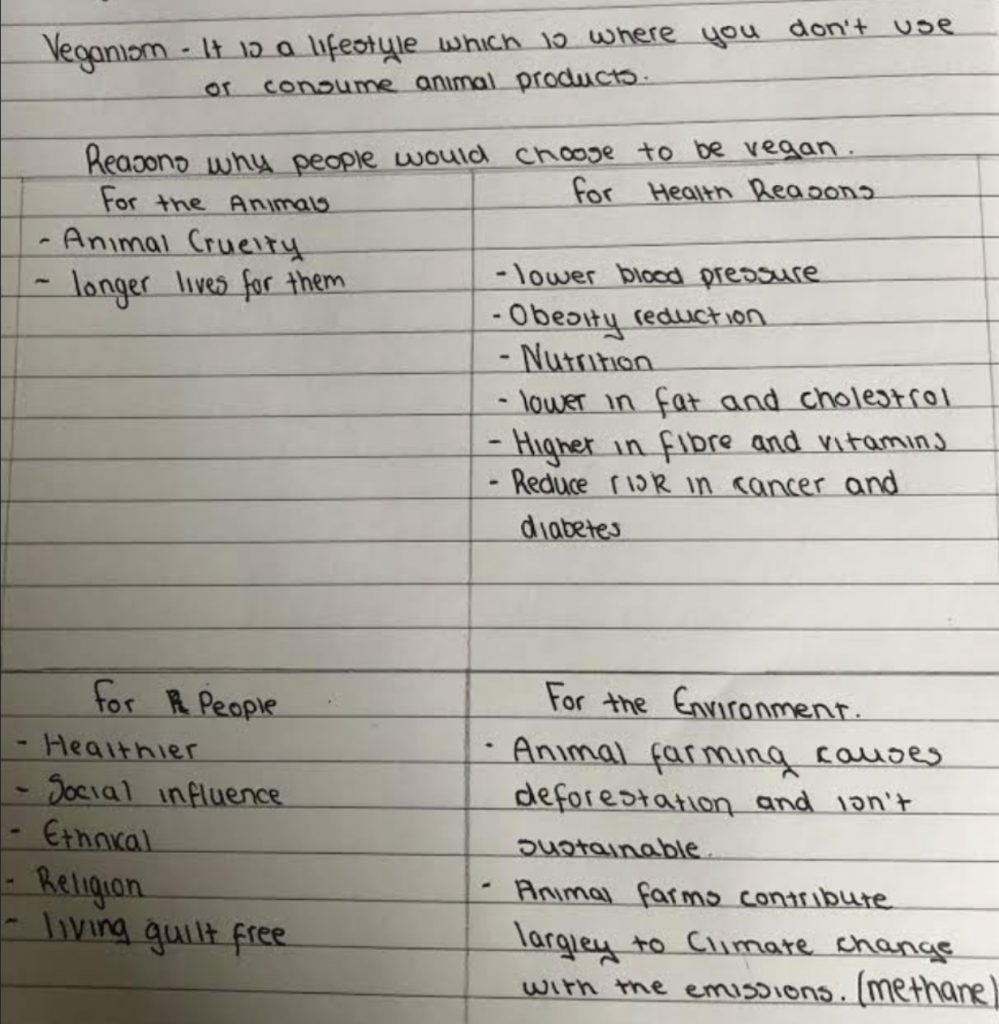 Veganism - It is a lifestyle which is where you don't use
or consume animal products.
Reasons why people would choose to be vegan.
For the Animals
- Animal Cruelty
- longer lives for them
for Health Reasons
- lower blood pressure
- Obesity reduction
- Nutrition
- lower in fat and cholestrol
- Higher in fibre and vitamins
- Reduce risk in cancer and
diabetes
for People
- Healthier
- Social influence
- Ethnical
- Religion
- living guilt free
For the Environment.
- Animal farming causes
deforestation and isn't
sustainable.
- Animal farms contribute
largley to Climate change
with the emissions. (methane)